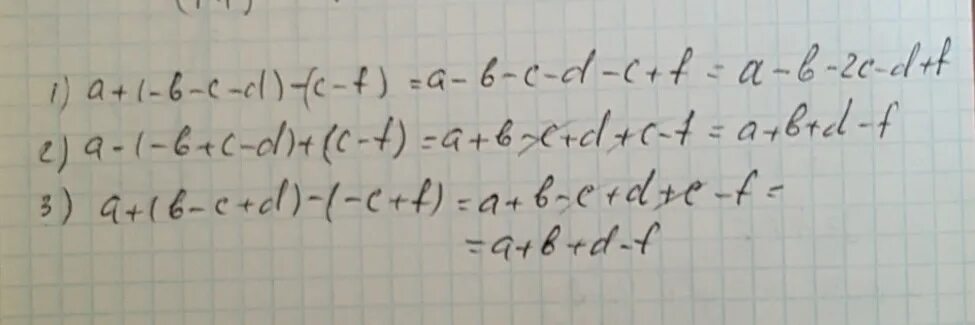 1) a+(-b-c-d)-(c-f) =a-b-c-d-c+f = a-b-2c-d+f
2) a-(-b+c-d)+(c-f) =a+b-c+d+c-f = a+b+d-f
3) a+(b-c+d)-(-c+f) =a+b-c+d+c-f=
=a+b+d-f